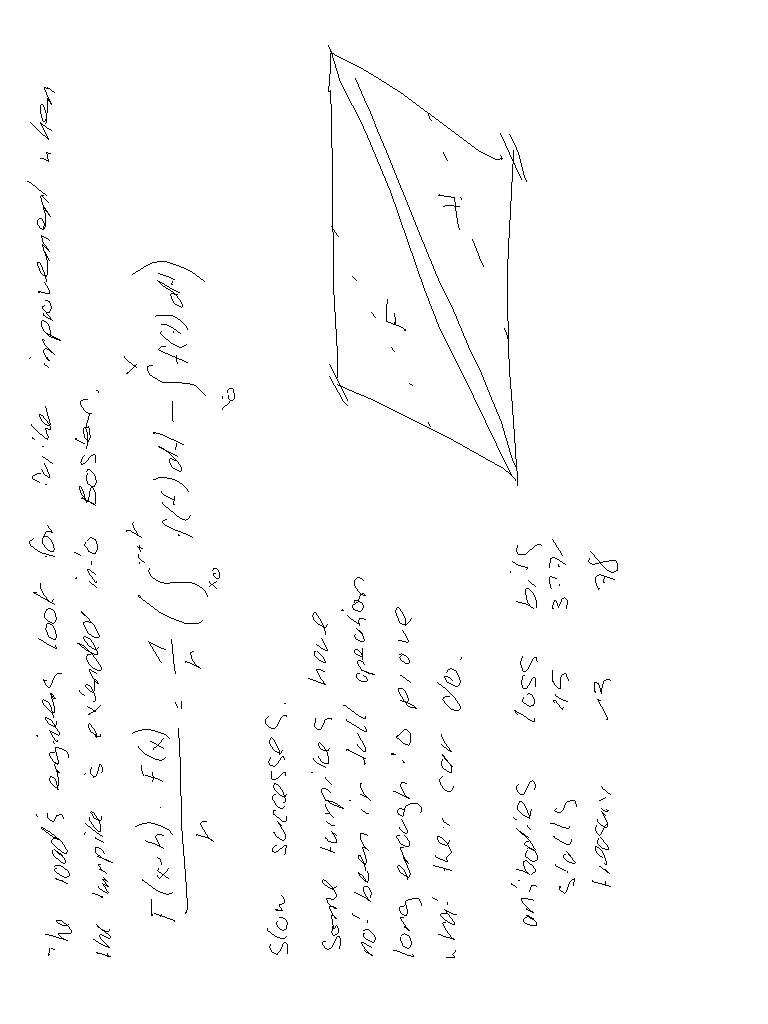 The road's engineers look for further improvement when
the turnpike is extended into Boston.
\frac{F(x+h) - F(x)}{h} = \frac{1}{h} \left( \int_{x_0}^{x+h} f(t) dt - \int_{x_0}^{x} f(t) dt \right)
Slow successes.
Some turnpikes have
not been in full operation
long enough to prove
what they can do.
F
H
antibodies loss bits
Sally 45
treasury 78